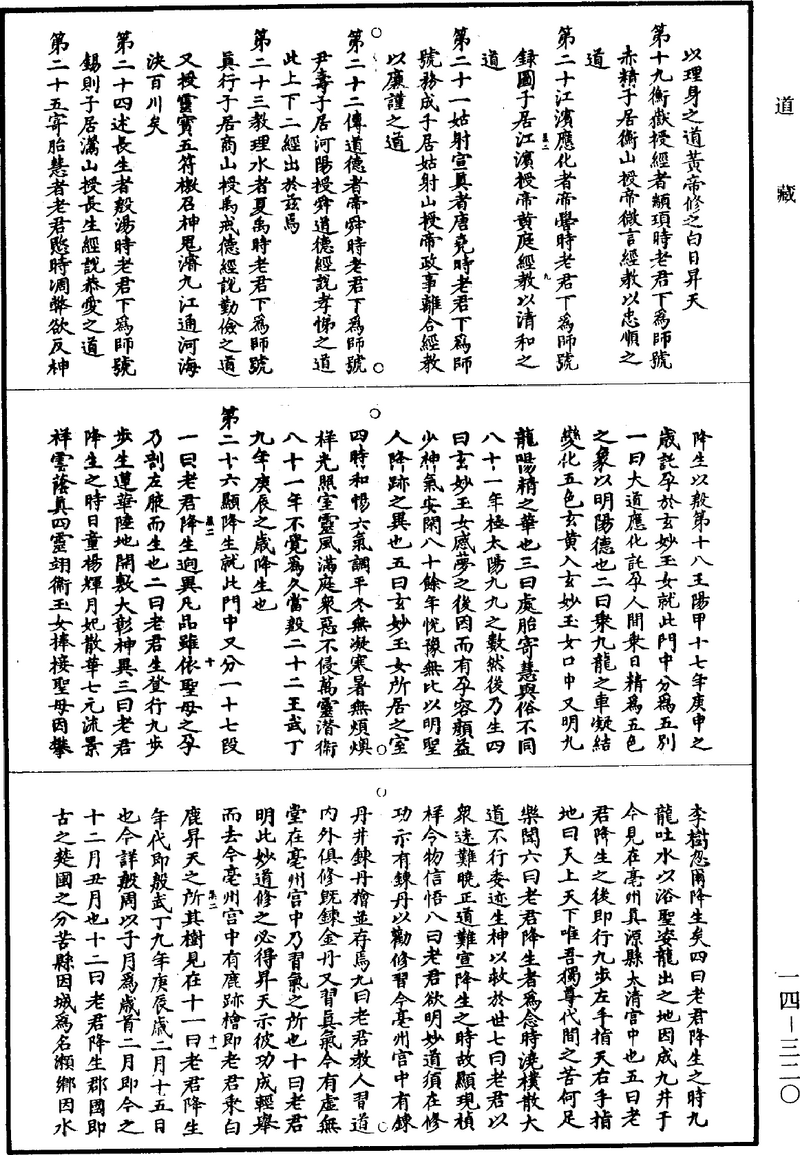 道藏
以理身之道黃帝修之白日昇天
第十九衡嶽授經者顓頊時老君下為師號
赤精子居衡山授帝微言經教以忠順之
道
第二十江濱應化者帝嚳時老君下為師號
錄圖子居江濱授帝黃庭經教以清和之
道
第二十一姑射宣真者唐堯時老君下為師
號務成子居姑射山授帝政事離合經教
以廉謹之道
第二十二傳道德者帝舜時老君下為師號
尹壽子居河陽授舜道德經說孝悌之道
此上下二經出於茲焉
第二十三教理水者夏禹時老君下為師號
真行子居商山授禹戒德經說勤儉之道
又授靈寶五符檄召神鬼濬九江通河海
決百川矣
第二十四述長生者殷湯時老君下為師號
錫則子居潙山授長生經說恭愛之道
第二十五寄胎慧者老君愍時凋弊欲反神
降生以殷第十八王陽甲十七年庚申之
歲託孕於玄妙玉女就此門中分為五別
一曰大道應化託孕人間乘日精為五色
之象以明陽德也二曰乘九龍之車凝結
變化五色玄黃入玄妙玉女口中又明九
龍陽精之華也三曰處胎寄慧與俗不同
八十一年極太陽九九之數然後乃生四
曰玄妙玉女感夢之後因而有孕容顏益
少神氣安閑八十餘年恱豫無比以明聖
人降跡之異也五曰玄妙玉女所居之室
四時和暢六氣調平冬無凝寒暑無煩燠
祥光照室靈風滿庭衆惡不侵萬靈潛衛
八十一年不覺為久當殷二十二王武丁
九年庚辰之歲降生也
第二十六顯降生就此門中又分一十七段
一曰老君降生逈異凡品雖依聖母之孕
乃剖左腋而生也二曰老君生登行九步
步生蓮華陸地開敷大彰神異三曰老君
降生之時日童楊輝月妃散華七元流景
祥雲蔭真四靈翊衛玉女捧接聖母因攀
李樹忽爾降生矣四曰老君降生之時九
龍吐水以浴聖姿龍出之地因成九井于
今見在亳州真源縣太清宮中也五曰老
君降生之後即行九步左手指天右手指
地曰天上天下唯吾獨尊代間之苦何足
樂聞六曰老君降生者為念時澆樸散大
道不行委迹生神以救於世七曰老君以
衆迷難曉正道難宣降生之時故顯現楨
祥令物信悟八曰老君欲明妙道須在修
功示有鍊丹以勸修習今亳州宮中有鍊
丹井鍊丹檜並存焉九曰老君教人習道
內外俱修旣鍊金丹又習真氣今有虛無
堂在亳州宮中乃習氣之所也十曰老君
明此妙道修之必得昇天示彼功成輕舉
而去今亳州宮中有鹿跡檜即老君乘白
鹿昇天之所其樹見在十一曰老君降生
年代即殷武丁九年庚辰歲二月十五日
也今詳殷周以子月為歲首二月即今之
十二月丑月也十二曰老君降生郡國即
古之楚國之分苦縣因城為名瀨鄉因水
一四－三二〇